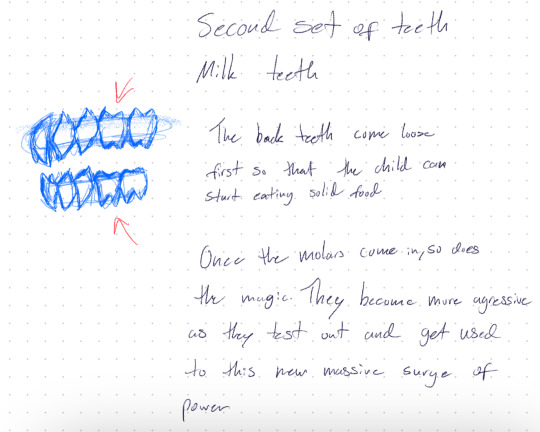 Second set of teeth
Milk teeth
The back teeth come loose
first so that the child can
start eating solid food
Once the molars come in, so does
the magic. They become more agressive
as they test out and get used
to this new massive surge of
power